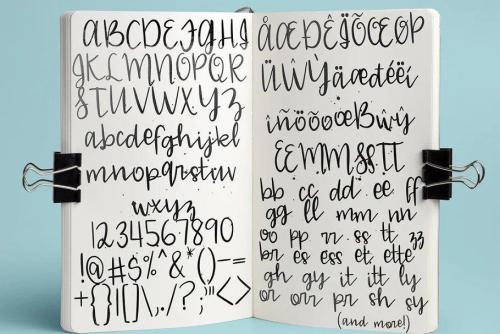 ABCDEFGHI
JKLMNOPQR
STUVWXYZ
abcdefghijkl
mnopqrstuv
wxyz
1234567890
!@#$%^&*()-=
+{}[]\,./?;"<>
ÅÆÐÊĨÕŒØÞ
ÜŴỲäæđéëi
iñöõøœßŵỳ
EE MM SS TT
bb cc dd ee ff
gg ll mm nn
oo pp rr ss tt zz
br es ess et ette
gh gy it itt ly
or orr pr sh sy
(and more!)